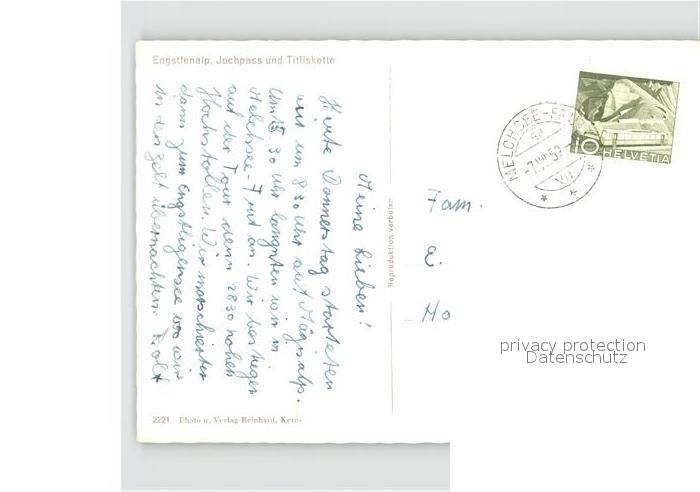 Engstlenalp, Jochpass und Titliskette
Meine Lieben!
Heute Donnerstag starteten
wir um 8 30 Uhr auf Mägisalp.
Um 15.30 Uhr langten wir in
Melchsee-Frut an. Wir bestiegen
auf der Tour denn 2830 hohen
Hochstollen. Wir marschierten
dann zum Engstligensee woo wir
in den Zelt übernachten. Rolf
Reproduktion verboten
2221 Photo u. Verlag Reinhard, Kerns
MELCHSEE-FRU
-7.VIII.52
10 HELVETIA
Fam.
E.
Ho
privacy protection
Datenschutz